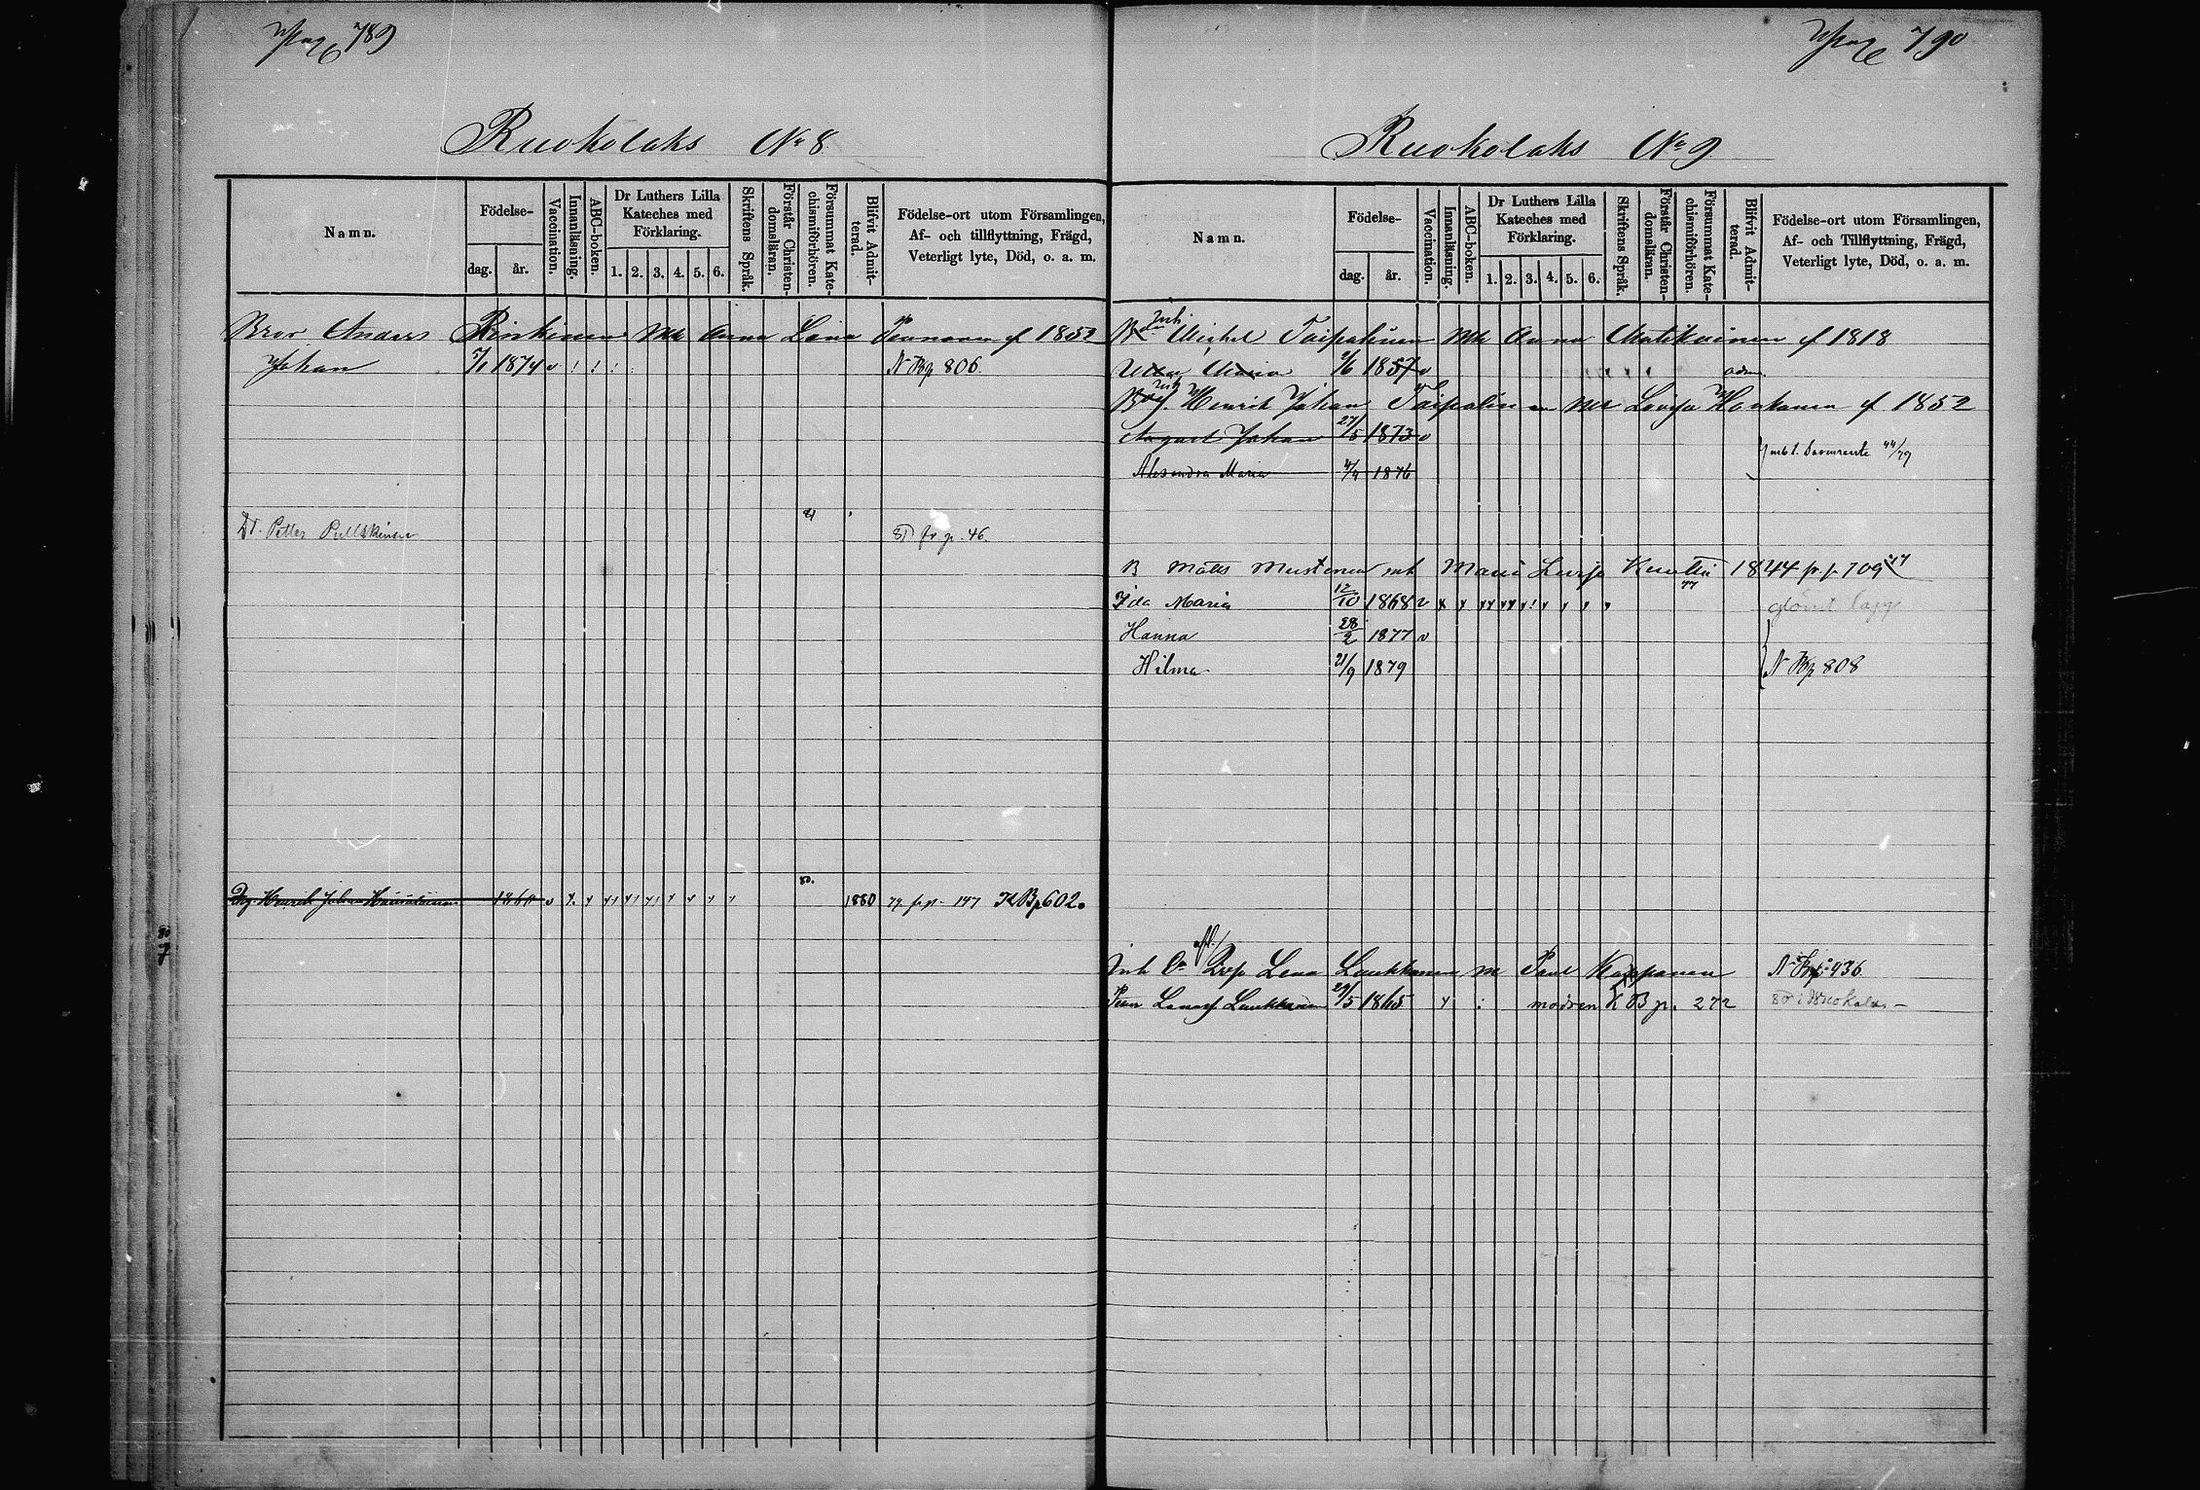 789
Ruokolaks No 8.
Namn.
Födelse-
dag.
år.
Vaccination.
Innanläsning.
ABC-boken.
Dr Luthers Lilla
Kateches med
Förklaring.
1. 2. 3. 4. 5. 6.
Skriftens Språk.
Förstår Christen-
domsläran.
Försummat Kate-
chismiförhören.
Blifvit Admit-
terad.
Födelse-ort utom Församlingen,
Af- och tillflyttning, Frägd,
Veterligt lyte, Död, o. a. m.
Bror Anders Rinkinen Mh Anna Lena f 1852
Johan 5/1 1874 v N Bp 806.
81
Dr. Petter 81 fr p. 46.
80.
Henrik Johan 1860 v 1880 79 fr p. 147 KBp 602.
790
Ruokolaks No 9.
Namn.
Födelse-
dag.
år.
Vaccination.
Innanläsning.
ABC-boken.
Dr Luthers Lilla
Kateches med
Förklaring.
1. 2. 3. 4. 5. 6.
Skriftens Språk.
Förstår Christen-
domsläran.
Försummat Kate-
chismiförhören.
Blifvit Admit-
terad.
Födelse-ort utom Församlingen,
Af- och Tillflyttning, Frägd,
Veterligt lyte, Död, o. a. m.
Inh
Michel Taipalinen Mh Anna Matikainen f 1818
Maria 1857 v adm.
Inh
Henrik Johan Taipalinen Mh Lovisa Honkanen f 1852
August Johan 27/5 1873 v
Alexandra Maria 4/4 1876
B Matts Mustonen mh Maria Lovisa 1844 fr p 709
77
Ida Maria 12/10 1868 v
Hanna 28/2 1877 v
Hilma 21/9 1879 N Bp 808
Inh Lena Laukkanen m Paul Kopponen N Bp 436
Laukkanen 29/5 1865 modren K B p. 272